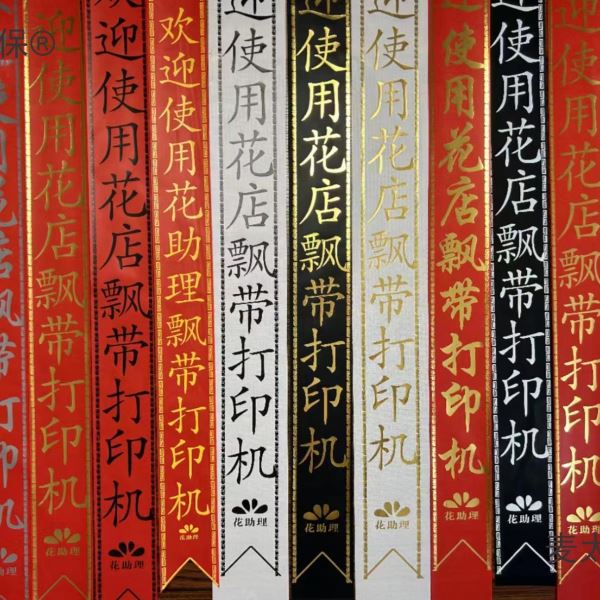 保®
使用花店飘带打印机
助理
迎使用花店飘带打印机
花助理
迎使用花店飘带打印机
花助理
欢迎使用花助理飘带打印机
花助理
迎使用花店飘带打印机
花助理
迎使用花店飘带打印机
花助理
迎使用花店飘带打印机
花助理
使用花店飘带打印机
花助理
迎使用花店飘带打印机
花助理
使用花店飘带打印机
花助理